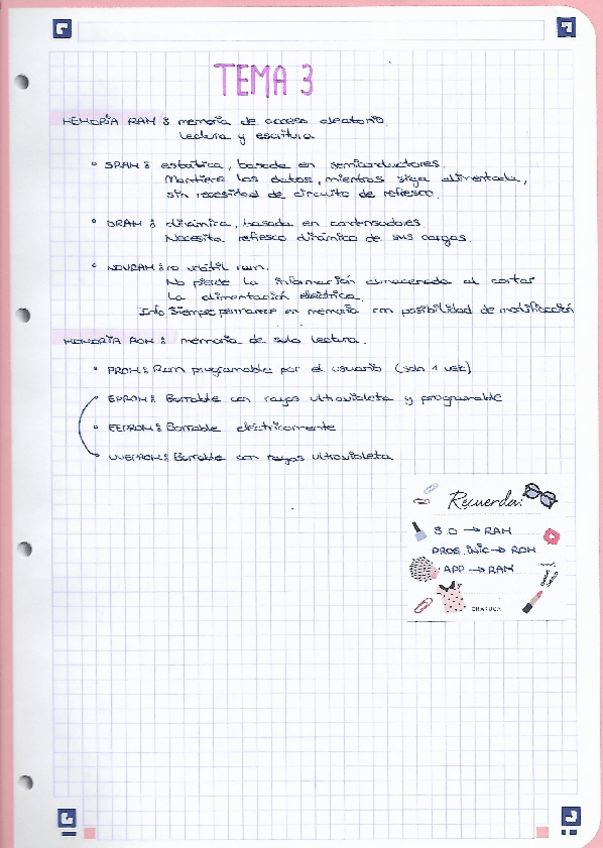 TEMA 3
MEMORIA RAM: memoria de acceso aleatorio.
Lectura y escritura
• SRAM: estática, basada en semiconductores.
Mantiene los datos, mientras siga alimentada,
sin necesidad de circuito de refresco.
• DRAM: dinámica, basada en condensadores
Necesita refresco dinámico de sus cargas.
• NOVRAM: no volátil ram.
No pierde la información almacenada al cortar
la alimentación eléctrica.
Info siempre permanece en memoria con posibilidad de modificación
MEMORIA ROM: memoria de solo lectura.
• PROM: Rom programable por el usuario (solo 1 vez)
• EPROM: Borrable con rayos ultravioleta y programable
• EEPROM: Borrable eléctricamente
• UVEPROM: Borrable con rayos ultravioleta
Recuerda:
S.O → RAM
PROG. INIC → ROM
APP → RAM
CHARUCA